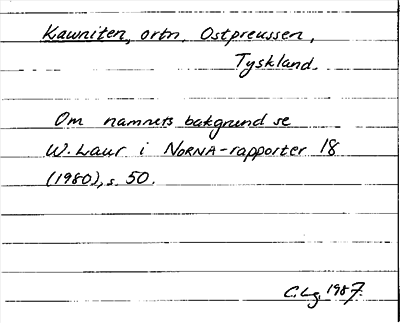 Kawniten, ortn. Ostpreussen,
Tyskland.
Om namnets bakgrund se
W. Laur i NORNA-rapporter 18
(1980), s. 50.
C.Lg. 1987.